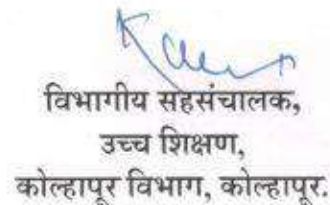 विभागीय सहसंचालक,
उच्च शिक्षण,
कोल्हापूर विभाग, कोल्हापूर.